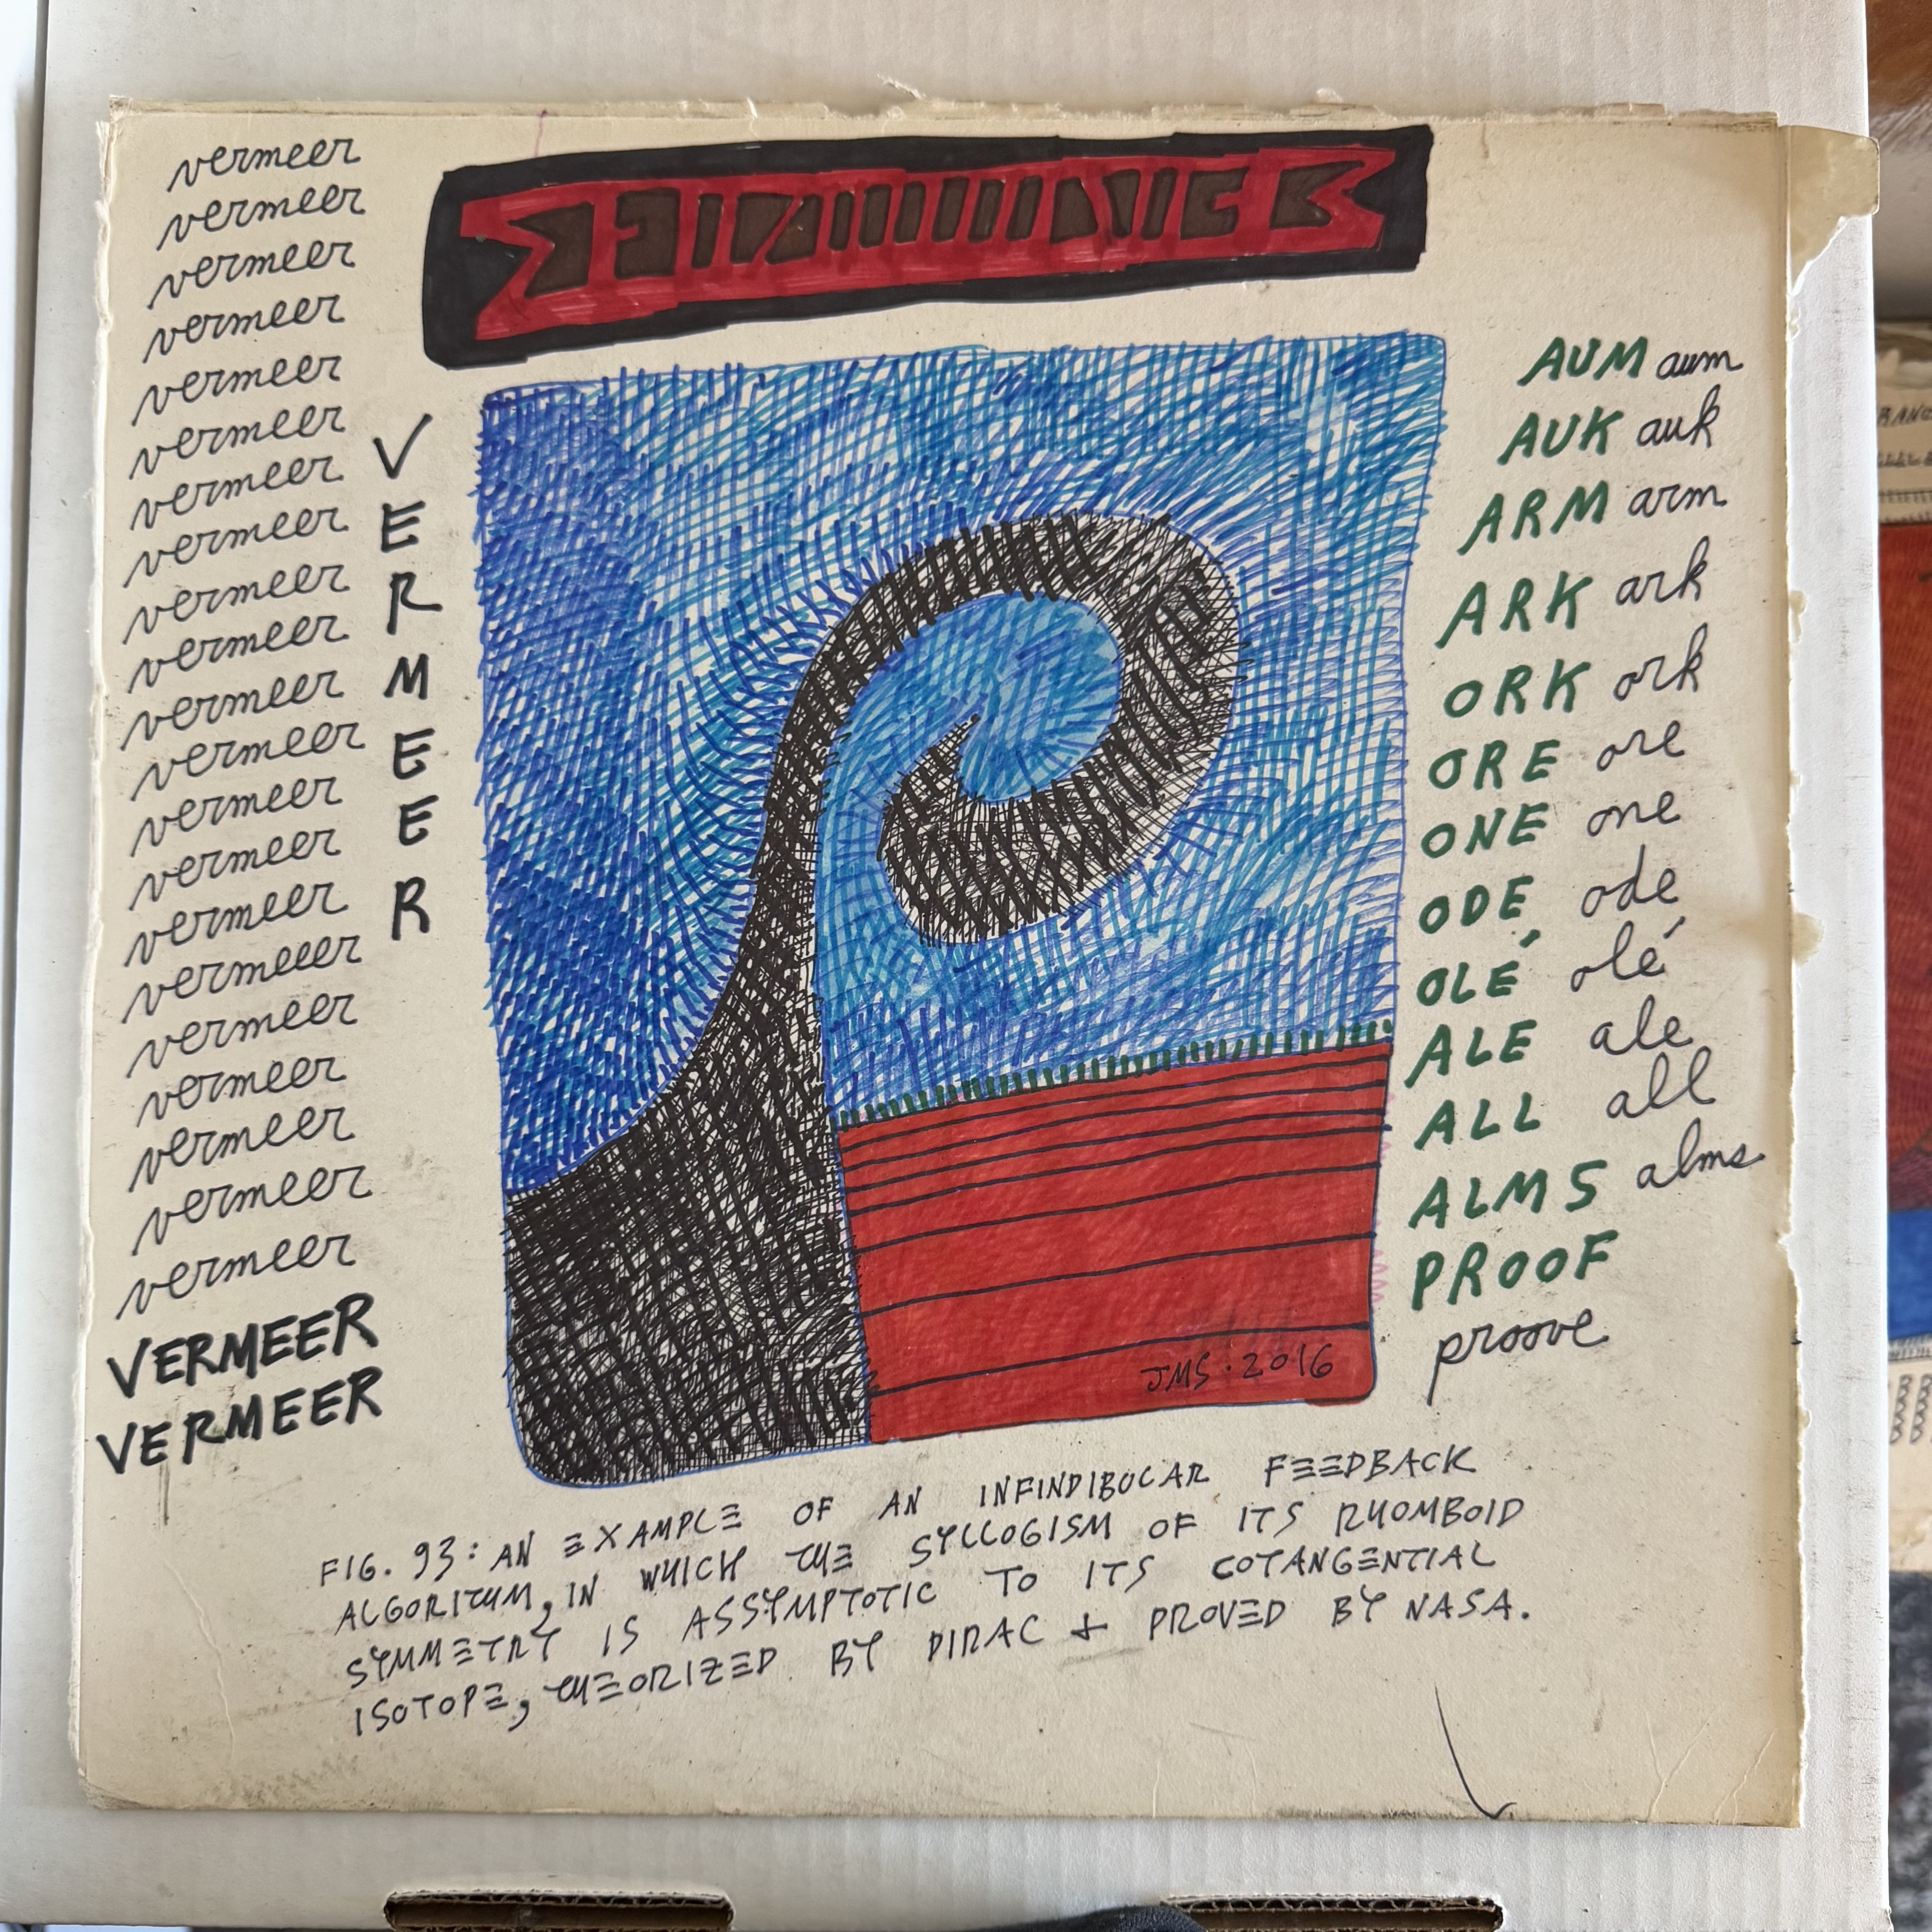 vermeer
vermeer
vermeer
vermeer
vermeer
vermeer
vermeer
vermeer
vermeer
vermeer
vermeer
vermeer
vermeer
vermeer
vermeer
vermeeer
vermeer
vermeer
vermeer
vermeer
vermeer
VERMEER
VERMEER
VERMEER
AUM aum
AUK auk
ARM arm
ARK ark
ORK ork
ORE ore
ONE one
ODE ode
OLÉ olé
ALE ale
ALL all
ALMS alms
PROOF
proove
JMS · 2016
FIG. 93: AN EXAMPLE OF AN INFINDIBULAR FEEDBACK
ALGORITHM, IN WHICH THE SYLLOGISM OF ITS RHOMBOID
SYMMETRY IS ASSYMPTOTIC TO ITS COTANGENTIAL
ISOTOPE, THEORIZED BY DIRAC + PROVED BY NASA.